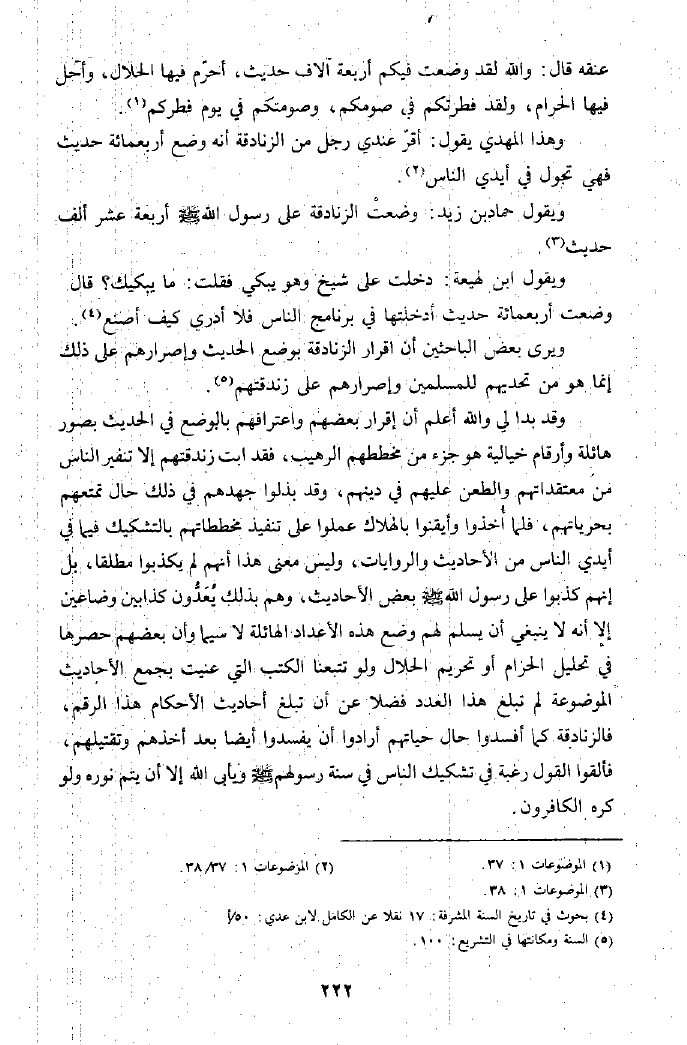 عنقه قال: والله لقد وضعت فيكم أربعة آلاف حديث، أحرّم فيها الحلال، وأحل
فيها الحرام، ولقد فطرتكم في صومكم، وصومتكم في يوم فطركم(١).
وهذا المهدي يقول: أقرّ عندي رجل من الزنادقة أنه وضع أربعمائة حديث
فهي تجول في أيدي الناس(٢).
ويقول حمادبن زيد: وضعتْ الزنادقة على رسول اللهﷺ أربعة عشر ألف
حديث(٣).
ويقول ابن لهيعة: دخلت على شيخ وهو يبكي فقلت: ما يبكيك؟ قال
وضعت أربعمائة حديث أدخلتها في برنامج الناس فلا أدري كيف أصنع(٤).
ويرى بعض الباحثين أن اقرار الزنادقة بوضع الحديث وإصرارهم على ذلك
إنما هو من تحديهم للمسلمين وإصرارهم على زندقتهم(٥).
وقد بدا لي والله أعلم أن إقرار بعضهم واعترافهم بالوضع في الحديث بصور
هائلة وأرقام خيالية هو جزء من مخططهم الرهيب، فقد ابت زندقتهم إلا تنفير الناس
من معتقداتهم والطعن عليهم في دينهم، وقد بذلوا جهدهم في ذلك حال تمتعهم
بحرياتهم، فلما أُخذوا وأيقنوا بالهلاك عملوا على تنفيذ مخططاتهم بالتشكيك فيما في
أيدي الناس من الأحاديث والروايات، وليس معنى هذا أنهم لم يكذبوا مطلقا، بل
إنهم كذبوا على رسول اللهﷺ بعض الأحاديث، وهم بذلك يُعَدُّون كذابين وضاعين
إلا أنه لا ينبغي أن يسلم لهم وضع هذه الأعداد الهائلة لا سيما وأن بعضهم حصرها
في تحليل الحرام أو تحريم الحلال ولو تتبعنا الكتب التي عنيت بجمع الأحاديث
الموضوعة لم تبلغ هذا العدد فضلا عن أن تبلغ أحاديث الأحكام هذا الرقم،
فالزنادقة كما أفسدوا حال حياتهم أرادوا أن يفسدوا أيضا بعد أخذهم وتقتيلهم،
فألقوا القول رغبة في تشكيك الناس في سنة رسولهمﷺ ويأبى الله إلا أن يتم نوره ولو
كره الكافرون.
(١) الموضوعات ١: ٣٧. (٢) الموضوعات ١: ٣٨/٣٧.
(٣) الموضوعات ١: ٣٨.
(٤) بحوث في تاريخ السنة المشرفة: ١٧ نقلا عن الكامل لابن عدي: ٥٠/أ
(٥) السنة ومكانتها في التشريع: ١٠٠.
٢٢٢